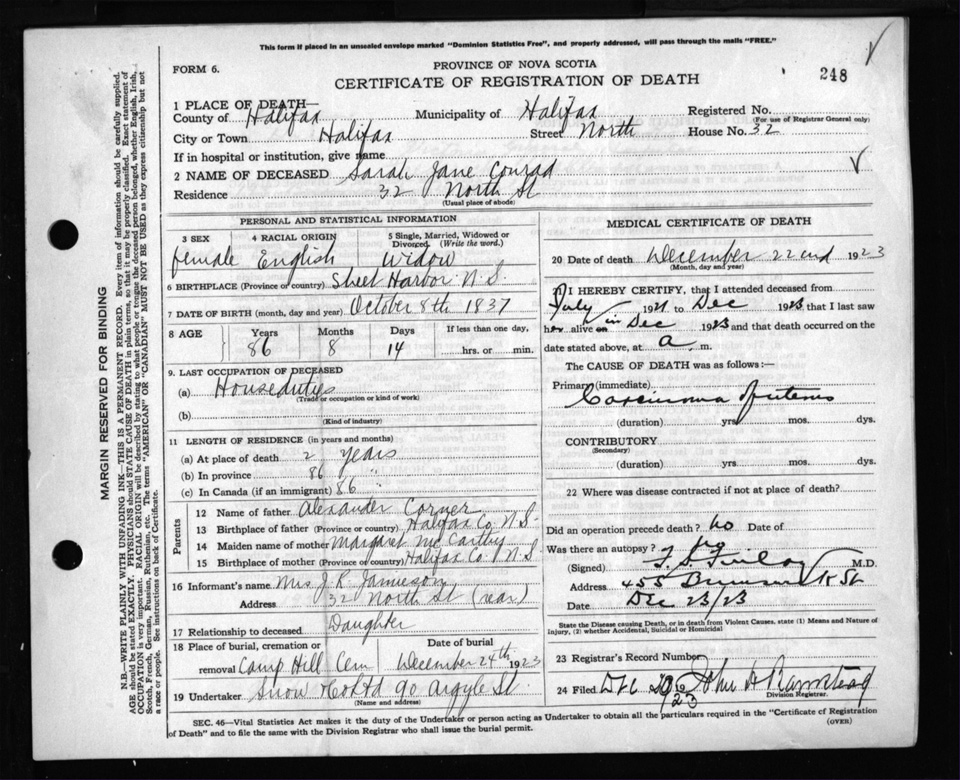 This form if placed in an unsealed envelope marked "Dominion Statistics Free", and properly addressed, will pass through the mails "FREE."
FORM 6.
PROVINCE OF NOVA SCOTIA
CERTIFICATE OF REGISTRATION OF DEATH
248
1 PLACE OF DEATH—
County of Halifax Municipality of Halifax Registered No.
(For use of Registrar General only)
City or Town Halifax Street North House No. 32
If in hospital or institution, give name
2 NAME OF DECEASED Sarah Jane Conrad
Residence 32 North St
(Usual place of abode)
PERSONAL AND STATISTICAL INFORMATION
3 SEX 4 RACIAL ORIGIN 5 Single, Married, Widowed or Divorced. (Write the word.)
female English Widow
6 BIRTHPLACE (Province or country) Sheet Harbor N.S.
7 DATE OF BIRTH (month, day and year) October 8th 1837
8 AGE Years Months Days If less than one day,
86 8 14 hrs. or min.
9. LAST OCCUPATION OF DECEASED
(a) House dutys
(Trade or occupation or kind of work)
(b)
(Kind of industry)
11 LENGTH OF RESIDENCE (in years and months)
(a) At place of death 2 years
(b) In province 86 "
(c) In Canada (if an immigrant) 86 "
Parents
12 Name of father Alexander Corner
13 Birthplace of father (Province or country) Halifax Co. N.S.
14 Maiden name of mother Margaret McCarthy
15 Birthplace of mother (Province or country) Halifax Co. N.S.
16 Informant's name Mrs J. R. Jamieson
Address 32 North St (rear)
17 Relationship to deceased Daughter
18 Place of burial, cremation or removal Camp Hill Cem
Date of burial December 24th 1923
19 Undertaker Snow & Co Ltd 90 Argyle St
(Name and address)
MEDICAL CERTIFICATE OF DEATH
20 Date of death December 22nd 1923
(Month, day and year)
I HEREBY CERTIFY, that I attended deceased from
July 1921 to Dec 1923 that I last saw
her alive on in Dec 1923 and that death occurred on the
date stated above, at a. m.
The CAUSE OF DEATH was as follows:—
Primary (immediate)
Carcinoma of uterus
(duration) yrs. mos. dys.
CONTRIBUTORY
(Secondary)
(duration) yrs. mos. dys.
22 Where was disease contracted if not at place of death?
Did an operation precede death? no Date of
Was there an autopsy? no
(Signed) Finlay M.D.
Address 455 Brunswick St
Date Dec 23/23
State the Disease causing Death, or in death from Violent Causes, state (1) Means and Nature of Injury, (2) whether Accidental, Suicidal or Homicidal
23 Registrar's Record Number
24 Filed Dec 1923 John A
Division Registrar.
SEC. 46—Vital Statistics Act makes it the duty of the Undertaker or person acting as Undertaker to obtain all the particulars required in the "Certificate of Registration of Death" and to file the same with the Division Registrar who shall issue the burial permit.
(OVER)
MARGIN RESERVED FOR BINDING
N.B.—WRITE PLAINLY WITH UNFADING INK—THIS IS A PERMANENT RECORD. Every item of information should be carefully supplied.
AGE should be stated EXACTLY. PHYSICIANS should STATE CAUSE OF DEATH in plain terms, so that it may be properly classified. Exact statement of
OCCUPATION is very important. RACIAL ORIGIN will be described by stating to what people or tongue the deceased person belonged, whether English, Irish,
Scotch, French, German, Russian, Ruthenian, etc. The terms "AMERICAN" OR "CANADIAN" MUST NOT BE USED as they express citizenship but not
a race or people. See instructions on back of Certificate.